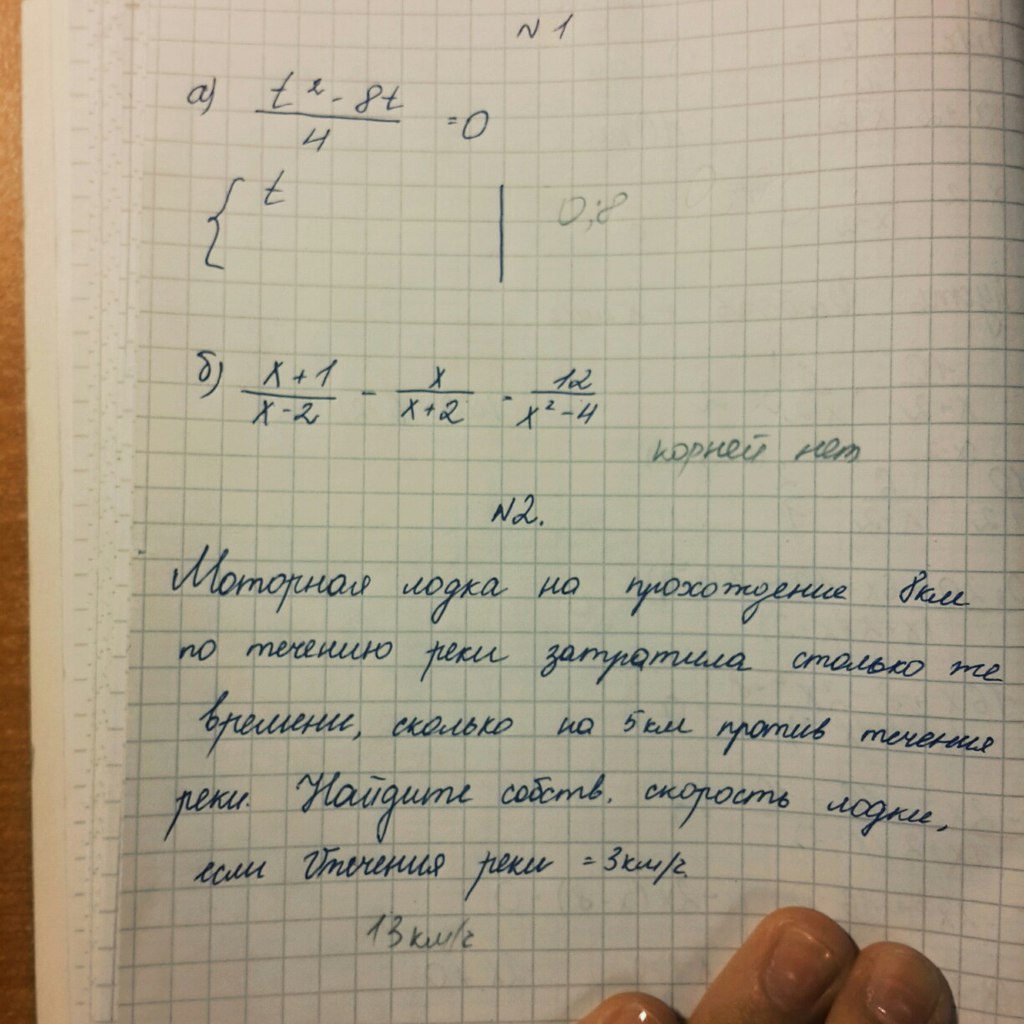 N 1
а) (t² - 8t)/4 = 0
{ t | 0; 8
б) (x + 1)/(x - 2) - x/(x + 2) - 12/(x² - 4)
корней нет
N2.
Моторная лодка на прохождение 8км
по течению реки затратила столько же
времени, сколько на 5км против течения
реки. Найдите собств. скорость лодки,
если Vтечения реки = 3км/ч.
13км/ч